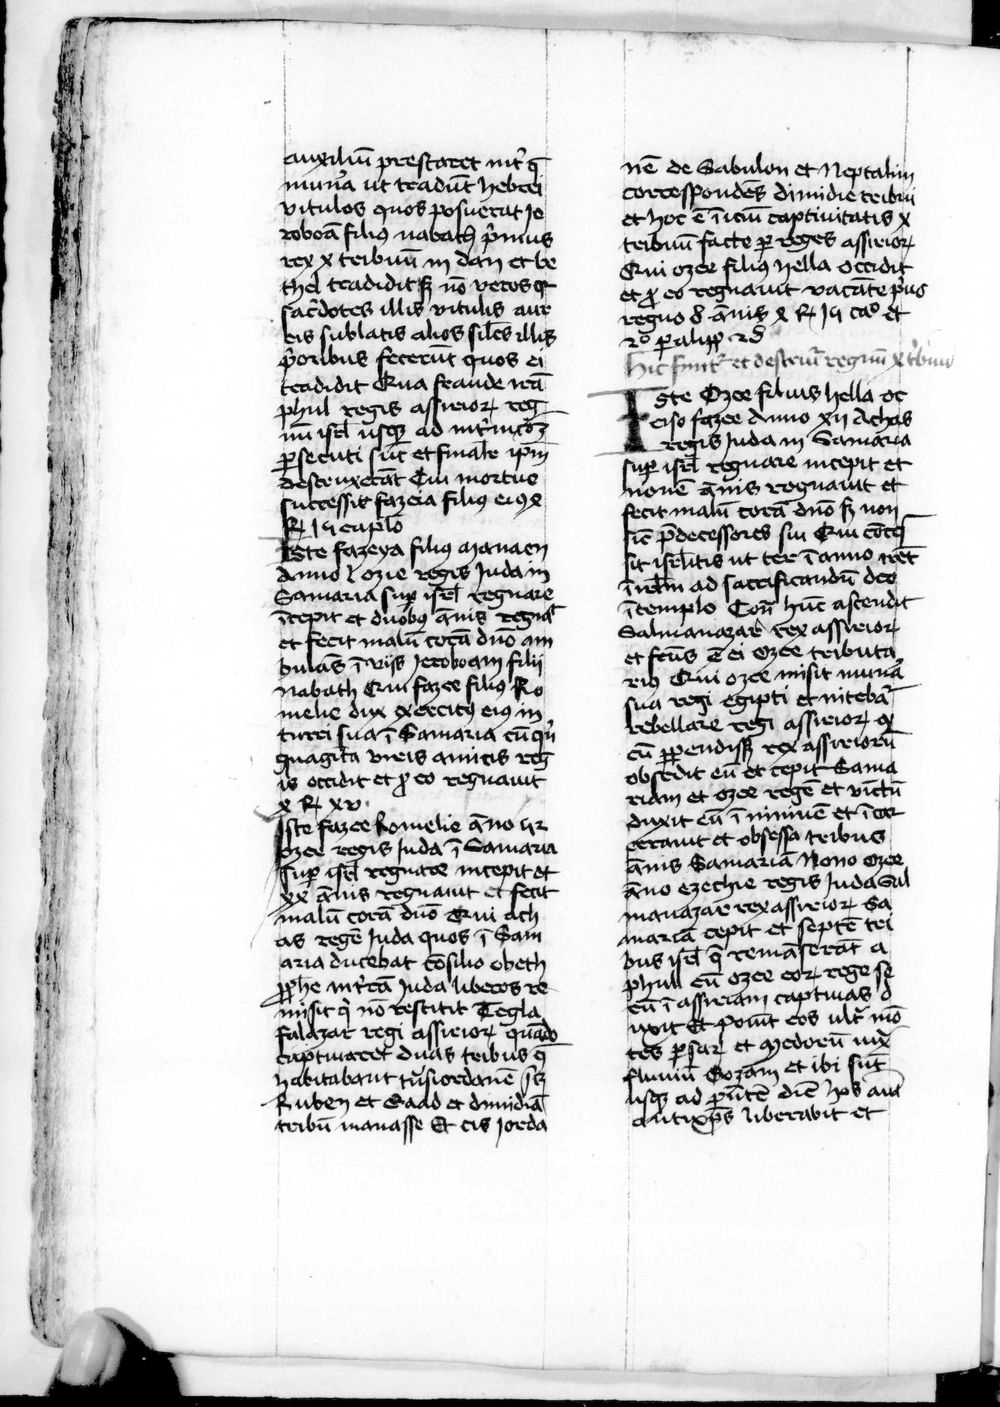 auxiliū prestaret int̾ q̄
mun̾a ut tradūt hebrei
vitulos quos posuerat Je
roboā filiꝰ nabath p̾mus
rex x tribuū in dan et be
thel tradidit sꝫ nō veros qꝛ
sac̾dotes illis vitulis aur
eis sublatis alios sił̄es illis
p̾oribus fecerūt quos ei
tradidit Qua fraude irā
phul regis assirioꝝ reg
nū isrł usqꝫ ad
ꝑsecuti sūt et finalr̄ ipm̄
destruxerāt Cui mortuo
successit fazeia filiꝰ eiꝰ
Iste fazeya filiꝰ Manaen
Anno l ozie regis Juda in
Samaria sup̄ isrł regnare
īcepit et duobꝰ ānis regna᷑
et fecit malū corā dn̄o am
bulās ī viis Jeroboam filii
Nabath Que fazee filiꝰ Ro
melie dux exercitꝰ eiꝰ in
turri sua ī Samaria cū qn̄
quaginta viris amicis reḡ
is occidit et ꝓ eo regnauit
xv
Iste fazee Romelie āno
ozee regis Juda ī Samaria
sup̄ isrł regnare incepit et
xx ānis regnauit et fecit
malū corā dn̄o Qui ach
as regē Juda quos ī Sam
aria ducebat cōsilio obeth
ꝓphe Juda liberos re
misit q̾ nō restitit Tegla
falazar regi assirioꝝ quādo
captiuaret duas tribus q̄
habitabant tn̄siordanē scꝫ
Ruben et Gaad et dimidiā
tribū manasse Et cis Jorda
nē de Sabulon et Neptalim
correspondēs dimidie tribui
et hoc ē īiciū captiuitatis x
tribuū facte ꝑ reges assirioꝝ
Qui ozee filiꝰ hella occidit
et ꝓ eo regnauit vacāte p̾us
regno ānis caᵒ et
ꝑalipp̄
hic finit᷑ et destruit᷑ regnū x tribuū
Iste Ozee filius hella oc
ciso fazee Anno xii Achas
regis Juda in Samaria
sup̄ isrł regnare incepit et
nouē ānis regnauit et
fecit malū corā dn̄o sꝫ non
sic p̄decessores sui Qui cōces
sit isrłitis ut ter ī anno irēt
ī irłm ad sacrificandū deo
ī templo Cont̾ hūc ascendit
Salmanazar rex assirioꝝ
et fc̄us ē ei Ozee tributa
riꝰ Qui ozee misit mun̾a
sua regi egipti et nitebat᷑
rebellare regi assirioꝝ qᵈ
cū ꝑpendissꝫ rex assiriorū
obsedit eū et cepit Sama
riam et ozee regē et vinctū
duxit eū ī niniuē et īcar
cerauit et obsessa tribus
ānis Samariā Nono ozee
āno ezechie regis Juda Sal
manazar rex assirioꝝ Sa
mariā cepit et septē tri
bus isrł q̄ remāserāt a
phul cū ozee eoꝝ rege se
cū ī assiriam captiuas d
uxit Et pōuit eos ult᷑ mō
tes ꝑsaꝝ et Medorū iux᷑
fluuiū Gozam et ibi sūt
usqꝫ ad p̄ntē diē hos
antixp̄s liberabit et